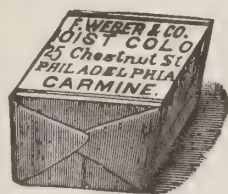 F. WEBER & CO.
OIST COLO
25 Chestnut St
PHILADELPHIA
CARMINE.